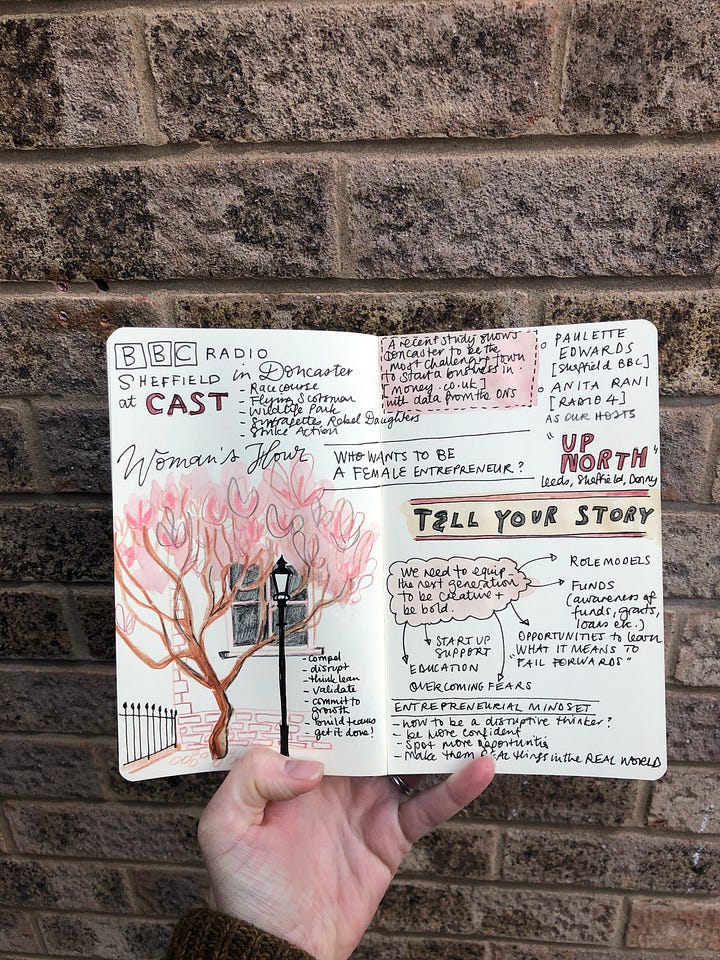 BBC RADIO
SHEFFIELD in Doncaster
at CAST
- Racecourse
- Flying Scotsman
- Wildlife Park
- Suffragettes Rebel Daughters
- Strike Action
Woman's Hour
WHO WANTS TO BE
A FEMALE ENTREPRENEUR?
- compel
- disrupt
- think lean
- validate
- commit to
growth
- build teams
- get it done!
A recent study shows
Doncaster to be the
most challenging town
to start a business in.
[money.co.uk]
with data from the ONS
PAULETTE
EDWARDS
[Sheffield BBC]
ANITA RANI
[RADIO 4]
AS OUR HOSTS
"UP
NORTH"
Leeds, Sheffield, Donny
TELL YOUR STORY
We need to equip
the next generation
to be creative +
be bold.
ROLE MODELS
FUNDS
(awareness of
funds, grants,
loans etc.)
OPPORTUNITIES to learn
"WHAT IT MEANS TO
FAIL FORWARDS"
START UP
SUPPORT
EDUCATION
OVERCOMING FEARS
ENTREPRENEURIAL MINDSET
- how to be a disruptive thinker?
- be more confident
- Spot more opportunities
- make them REAL things in the REAL WORLD